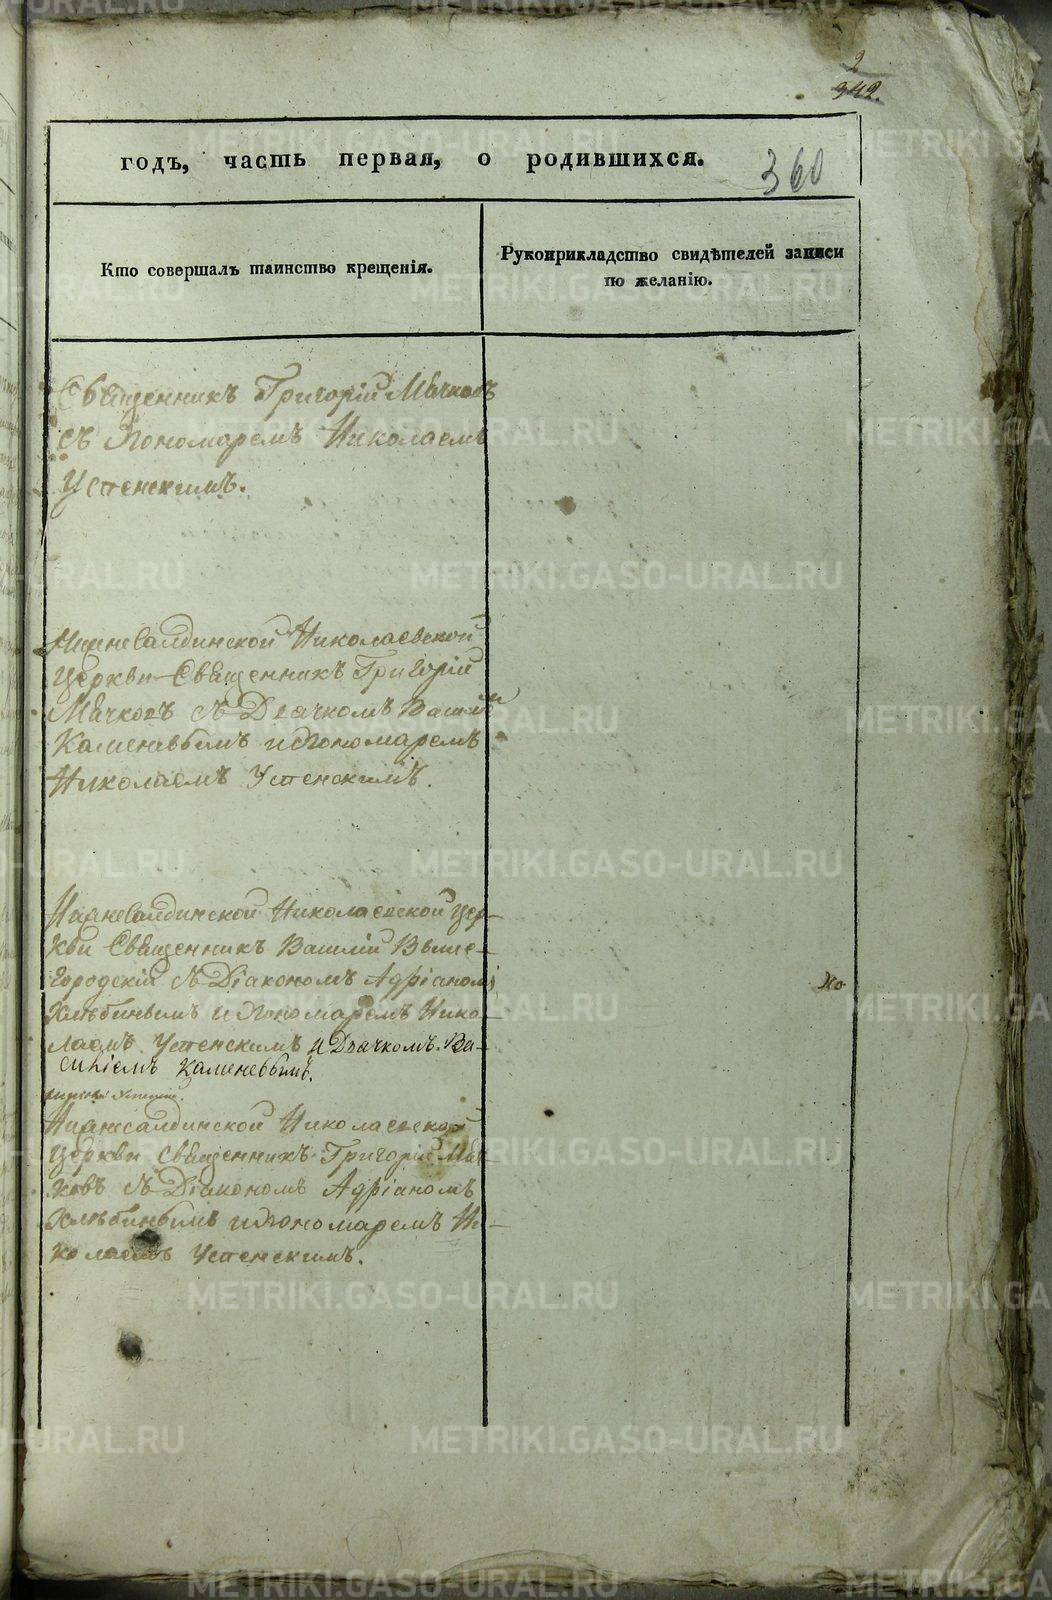 2
342.
годъ, часть первая, о родившихся.
360
Кто совершалъ таинство крещенія.
Рукоприкладство свидѣтелей записи
по желанію.
Священникъ Григорій Мачковъ
съ Пономаремъ Николаемъ
Успенскимъ.
Нижнесалдинской Николаевской
Церкви Священникъ Григорій
Мачковъ съ Дьячкомъ Василі
Каменевымъ и Пономаремъ
Николаемъ Успенскимъ.
Нижнесалдинской Николаевской Цер-
кви Священникъ Василій Выше-
городскій съ Діакономъ Адріаномъ
Хлѣбинымъ и Пономаремъ Нико-
лаемъ Успенскимъ и Дьячкомъ Ва-
силіемъ Каменевымъ.
Нижнесалдинской Николаевской
Церкви Священникъ Григорій Мач-
ковъ съ Діакономъ Адріаномъ
Хлѣбинымъ и Пономаремъ Ни-
колаемъ Успенскимъ.
METRIKI.GASO-URAL.RU